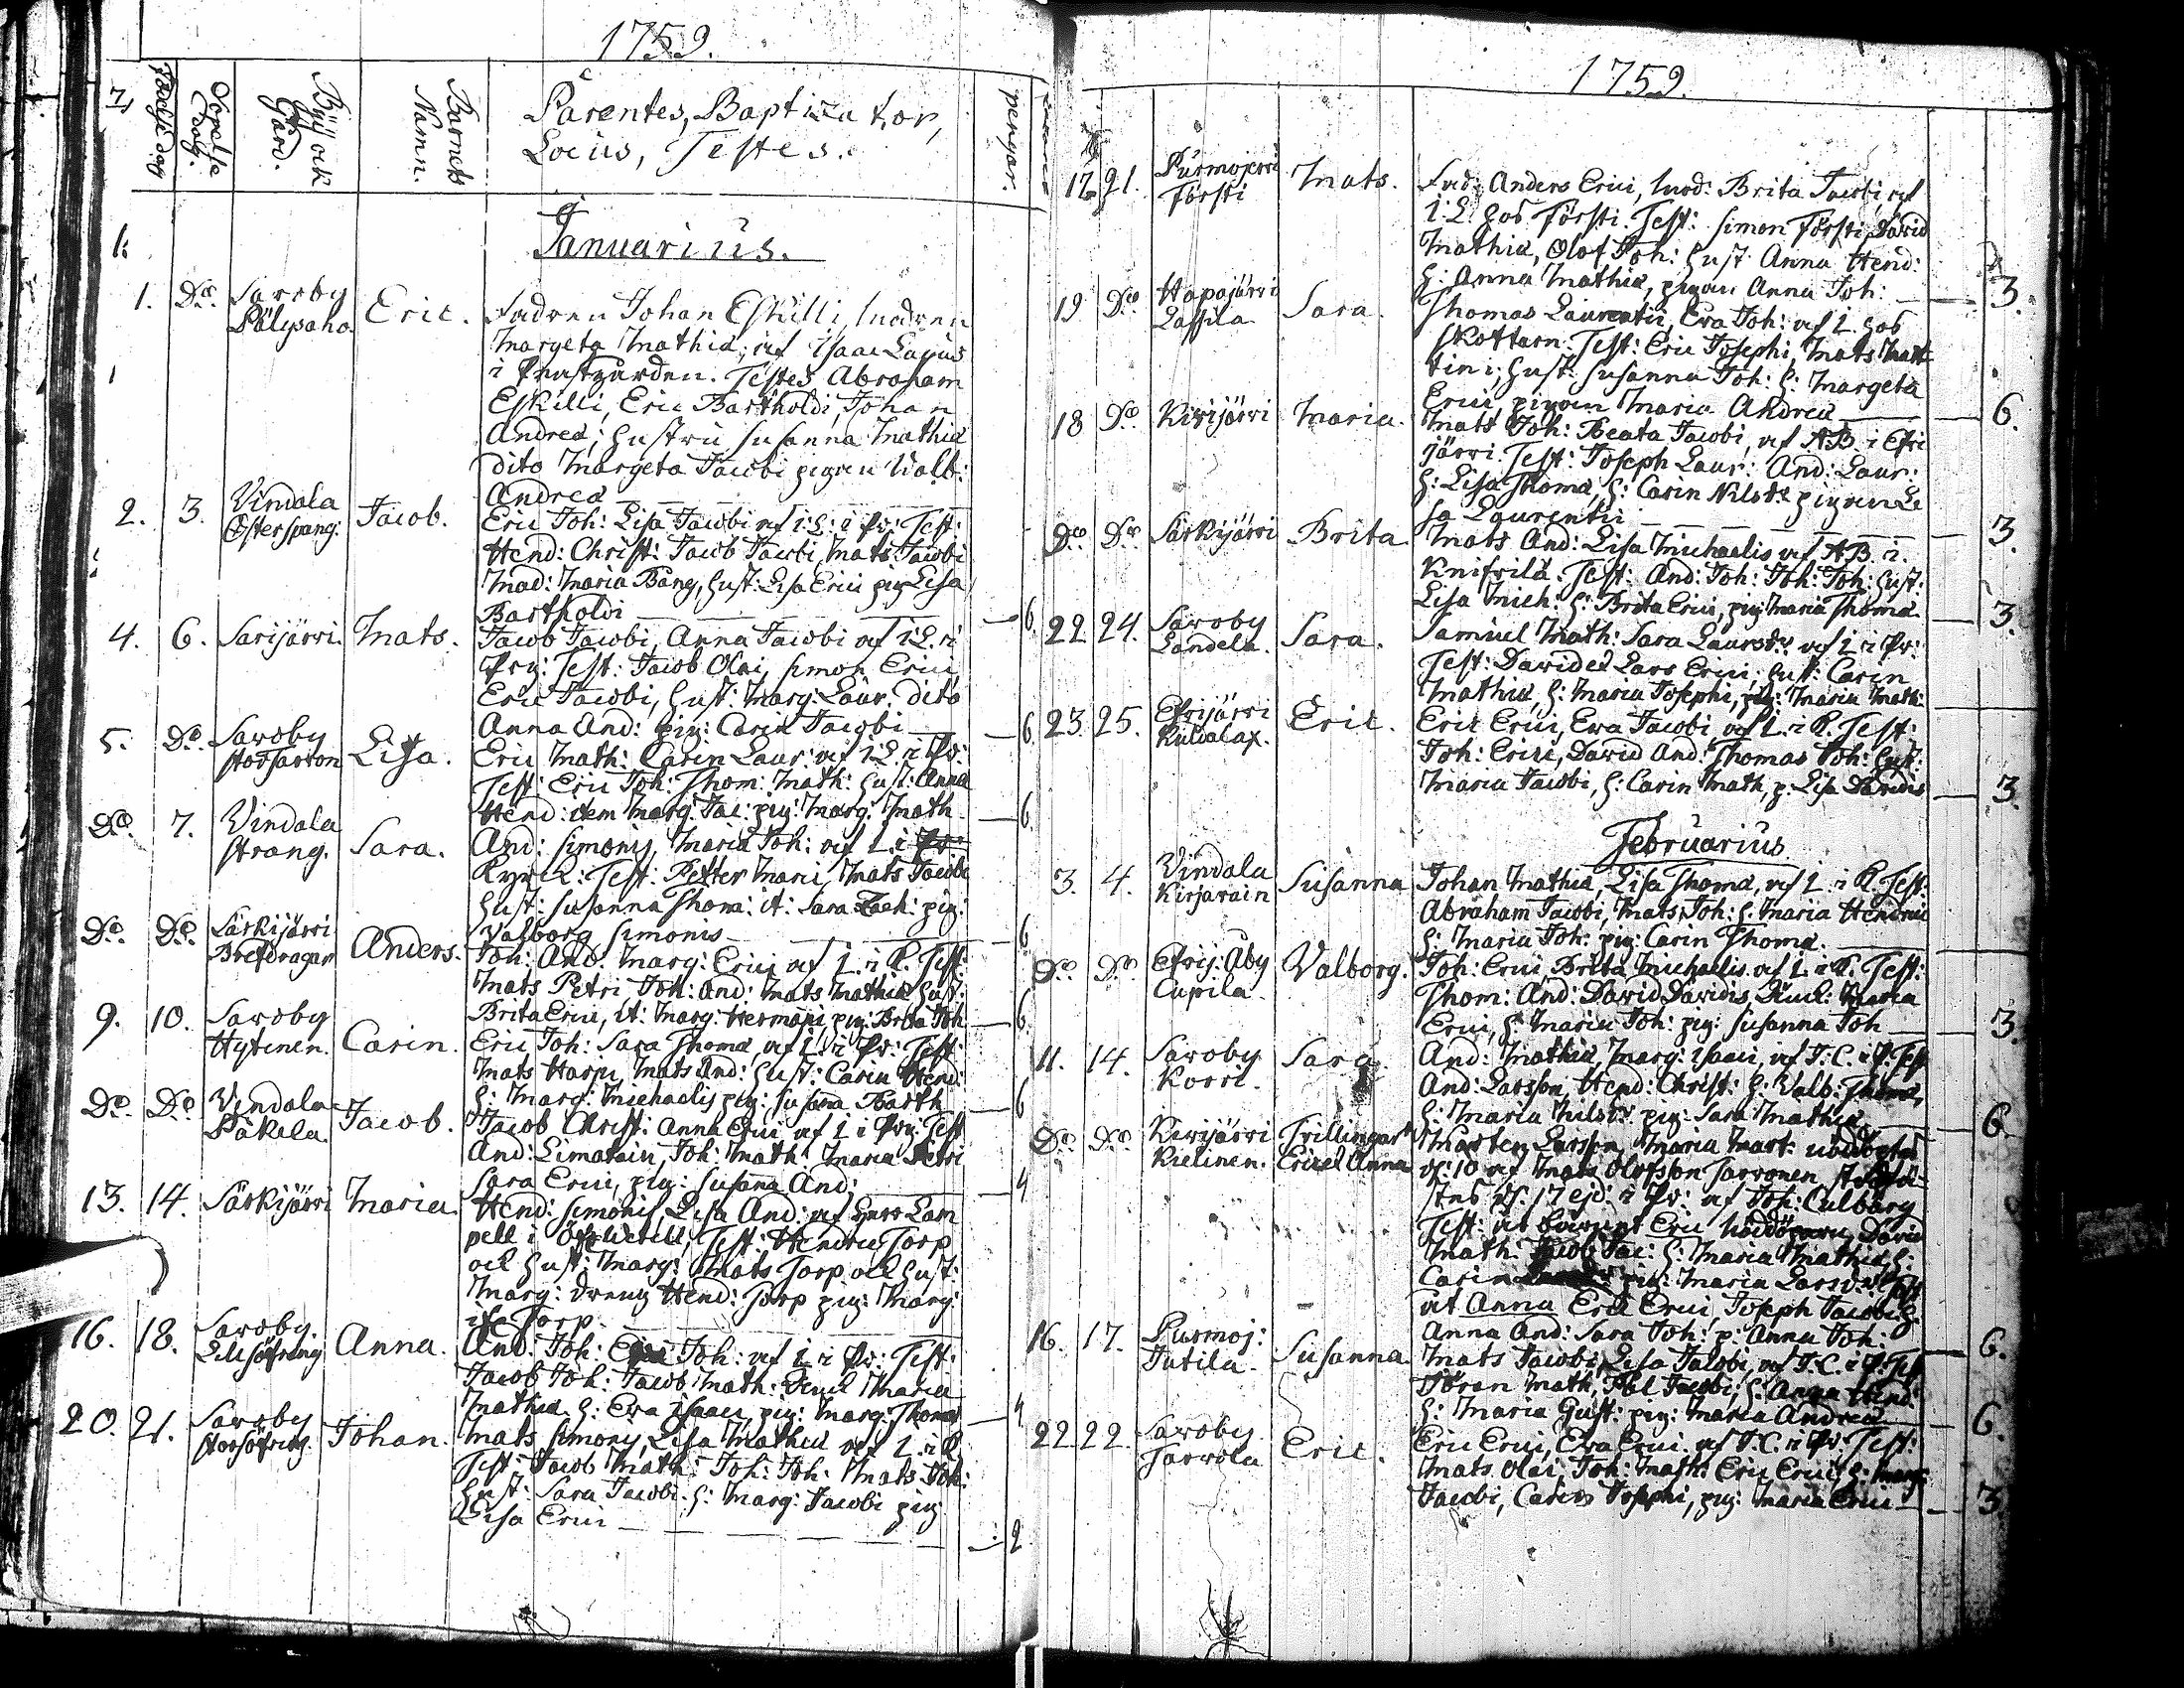 1759.
Födelse dag
Döpelse dag.
Byij ock Gård.
Barnets Namn.
Parentes, Baptizator,
Locus, Testes.
pengar.
Januarius.
1. Do. Saroby Eric. Fadren Johan Eskilli, modren
Pälysaho. Margeta Mathiæ, af Isaac
i Prästgården. Testes Abraham
Eskilli, Eric Bartholdi, Johan
Andreæ; hustru Susanna Mathiæ
dito Margeta Jacobi pigan Walb:
Andreæ
2. 3. Vindala Jacob. Eric Joh: Lisa Jacobi af i: L: i Pr: Test:
Österspang. Hend: Christ: Jacob Jacobi, Mats Jacobi
Mad: Maria Bång, hust: Lisa Erici pig Lisa
Bartholdi 6.
4. 6. Sarijärvi. Mats. Jacob Jacobi, Anna Jacobi af i: L. i
Prg: Test: Jacob Olai, Simon Erici,
Eric Jacobi, hust: Marg: Laur. dito
Anna And: pig: Carin Jacobi 6.
5. Do. Saroby Lisa. Eric Math: Carin Laur: af i: L. i Pr:
Test: Eric Joh: Thom: Math: hust: Anna
Hend: item Marg: Jac: pig: Marg: Math 6.
Do. 7. Vindala Sara. And: Simonis, Maria Joh: af L. i
Strang. Kyrck: Test: Petter Marci, Mats Jacobi
hust: Susanna Thomæ: it: Sara Zach: pig:
Valborg Simonis 6
Do. Do. Särkijärvi Anders. Joh: And: Marg: Erici af L. i K. Test:
Mats Petri Joh: And: Mats Mathiæ hust:
Brita Erici, it: Marg: Hermani pig: Brita Joh 6
9. 10. Saroby Carin. Eric Joh: Sara Thomæ af L. i Pr: Test:
Hytinen. Mats Harju, Mats And: hust: Carin Hend:
h: Marg: Michaelis pig: Susana Barth 6
Do. Do. Vindala Jacob. Jacob Christ: Anna Erici af L i Prg: Test
Päkila. And: Limatain, Joh: Math: Maria Petri
Sara Erici, pig: Susana And: 4
13. 14. Särkijärvi Maria. Hend: Simonis Lisa And: af Lam
pell i Test: Hendric Torp
och hust: Marg: Mats Torp och hust:
Marg: dreng Hend: Torp pig: Marg:
Torp.
16. 18. Saroby. Anna. And: Joh: Joh: af L i Pr: Test:
Jacob Joh: Jacob Math: Maria
Mathiæ. h: Eva Isaaci, pig: Marg: Thomæ 4
20. 21. Saroby Johan. Mats Simonis, Lisa Mathiæ af L. i K
Test: Jacob Math: Joh: Joh: Mats Joh:
hust: Sara Jacobi. h: Marg: Jacobi pig
Lisa Erici 2
1759.
17. 21. Purmojervi Mats. Fad: Anders Erici, mod: Brita Jacobi, af
Försti i: L: hos Försti. Test: Simon Försti, David
Mathiæ, Olof Joh: hust. Anna Hend:
h: Anna Mathiæ, pigan Anna Joh: 3.
19 Do Hapajärvi Sara. Thomas Laurentii, Eva Joh: af L. hos
Lassila Skottarn. Test: Eric Josephi, Mats Mar
tini; hust: Susanna Joh: h: Margeta
Erici, pigan Maria Andreæ 6.
18 Do Kirijärvi Maria. Mats Joh: Beata Jacobi, af A.B. i Efri
järvi. Test: Joseph Laur: And: Laur:
h: Lisa Thomæ, h: Carin Nilsdr pigan Li
sa Laurentii 3.
Do. Do Särkijärvi Brita Mats And: Lisa Michaelis af A.B. i
Knifsilä. Test: And: Joh: Joh: Joh: hust:
Lisa Mich: h: Brita Erici, pig: Maria Thomæ. 3.
22 24. Saroby Sara. Samuel Math: Sara Larsdr af L i Pr:
Landela. Test: Lars Erici, hust: Carin
Mathiæ, h: Maria Josephi, pig: Maria Math:
23. 25. Efrijärvi Eric. Eric Erici, Ewa Jacobi, af L. i K. Test:
Joh: Erici, David And: Thomas Joh: hust:
Maria Jacobi, h: Carin Math, p: Lisa Davidis 3.
Februarius
3. 4. Vindala Susanna Johan Mathiæ, Lisa Thomæ, af L. i K. Test:
Kirjavain Abraham Jacobi, Mats Joh: h: Maria Hendrici
h: Maria Joh: pig: Carin Thomæ.
Do Do Efrij: Åby Valborg. Joh: Erici, Brita Michaelis af L i K. Test:
Cupila. Thom: And: David Davidis, Maria
Erici, h: Maria Joh: pig: Susanna Joh 3.
11. 14. Saroby Sara. And: Mathiæ, Marg: Isaaci, af J: C. i P: Test
Korri. And: Larsson, Hend: Christ: h: Walb: Thomæ,
h: Maria Nilsdr. pig: Sara Mathiæ 6.
Do Do Kirijärvi Trillingar Mårten Larsson, Maria Mart: nöddopta
Kielinen. Eric et Anna d: 10 af Mats Olofsson Jarvonen,
d: 17 ejd: i Pr: af Joh: Culberg
Test: åt Eric David
Math: Jacob Jac: h: Maria Mathiæ, h:
Carin pig: Maria Larsdr: Test
åt Anna Eric Erici, Joseph Jacobi h:
Anna And: Sara Joh: p: Anna Joh: 6.
16. 17. Purmoj: Susanna. Mats Jacobi, Lisa Jacobi, af J. C. i P: Test
Jutila. Jöran Math, Pål Jacobi, h: Anna Hend:
h: Maria Gust: pig: Maria Andreæ 6.
22 22. Saroby Eric. Eric Erici, Eva Erici. af J. C. i Pr: Test:
Jarvola Mats Olai, Joh: Math: Eric Erici, h: Marg:
Jacobi, Carin Josephi, pig: Maria Erici 3.